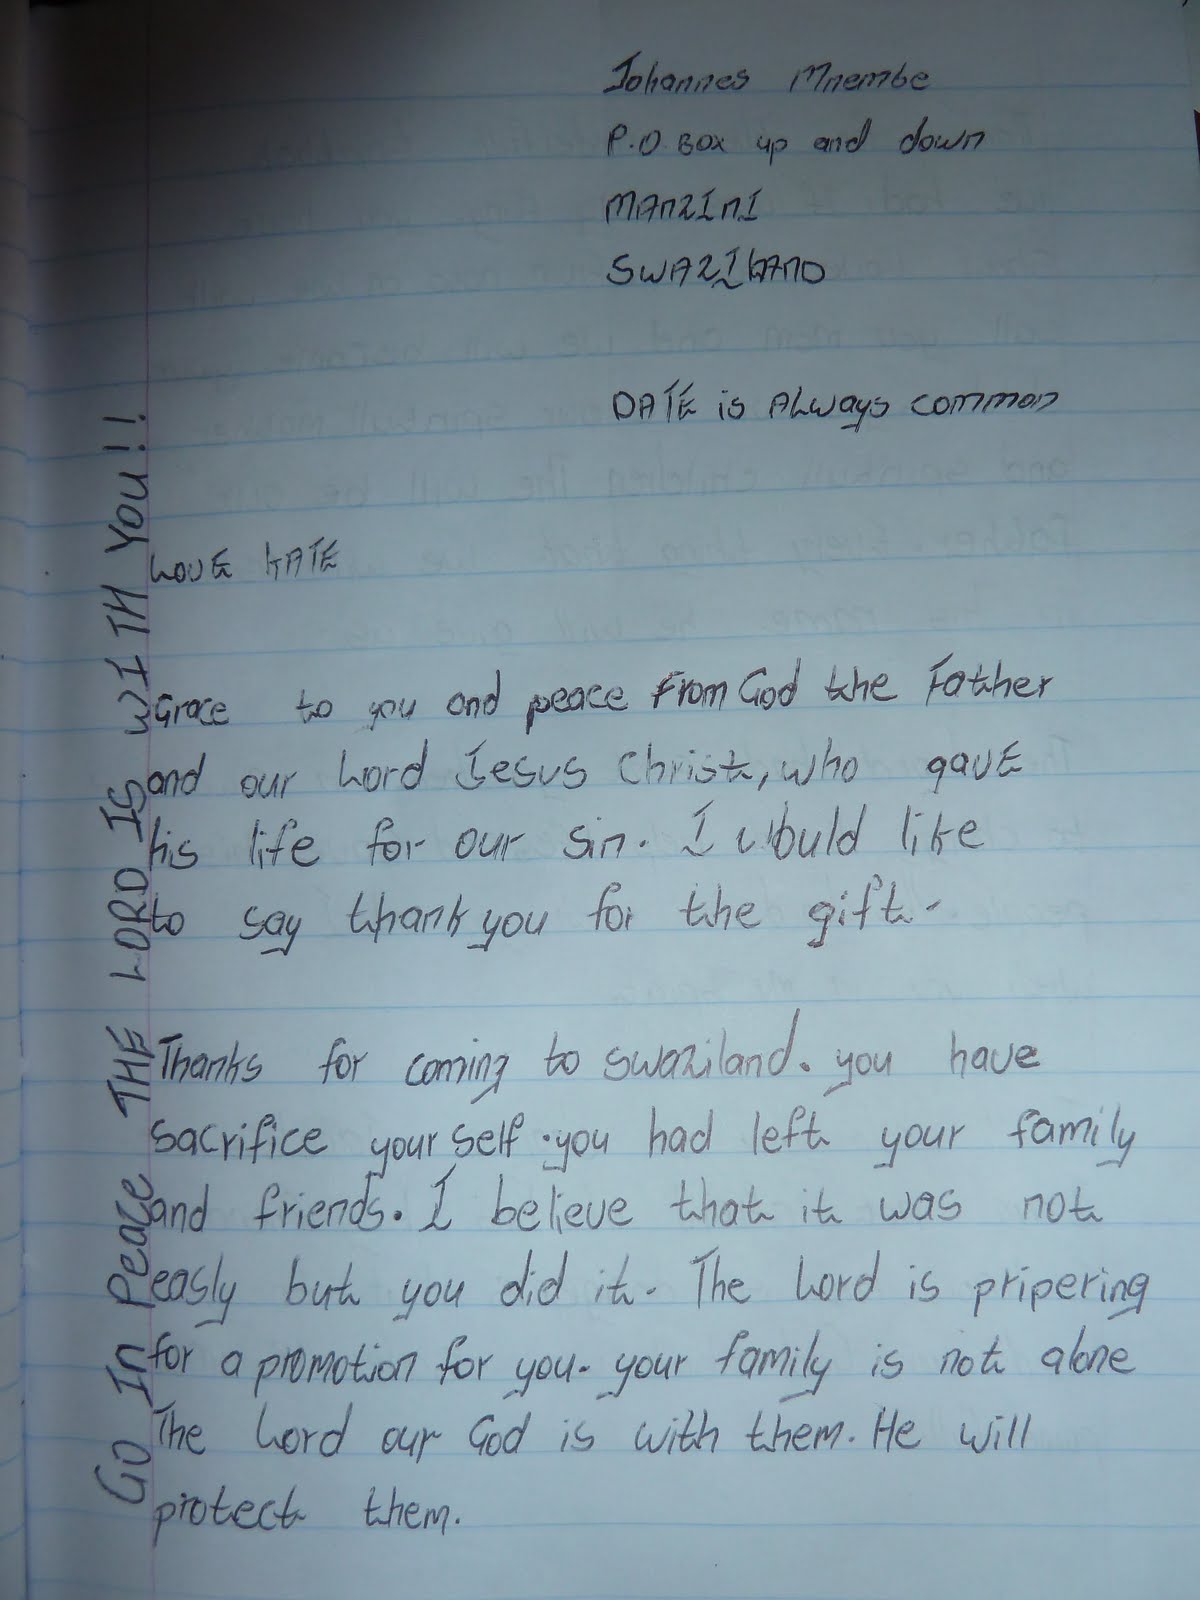 Johannes Mnembe
P.O. Box up and down
MANZINI
SWAZILAND
DATE is ALways common
LOVE KATE
Grace to you and peace From God the Father
and our Lord Jesus Christ, who gave
his life for our sin. I would like
to say thank you for the gift.
Thanks for coming to swaziland. you have
sacrifice your self. you had left your family
and friends. I believe that it was not
easly but you did it. The Lord is pripering
for a promotion for you. your family is not alone
The Lord our God is with them. He will
protect them.
GO IN PEACE THE LORD IS WITH YOU!!